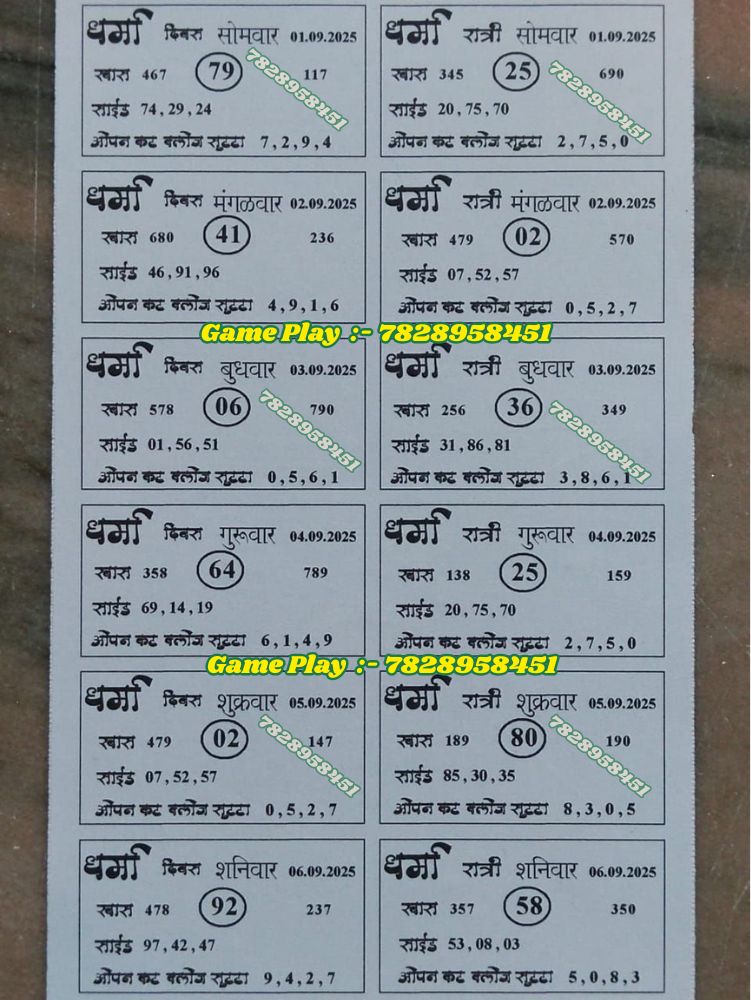 धर्मा दिवस सोमवार 01.09.2025
खास 467 79 117
साईड 74,29,24
ओपन कट क्लोज सुट्टा 7,2,9,4
7828958451
धर्मा रात्री सोमवार 01.09.2025
खास 345 25 690
साईड 20,75,70
ओपन कट क्लोज सुट्टा 2,7,5,0
7828958451
धर्मा दिवस मंगळवार 02.09.2025
खास 680 41 236
साईड 46,91,96
ओपन कट क्लोज सुट्टा 4,9,1,6
धर्मा रात्री मंगळवार 02.09.2025
खास 479 02 570
साईड 07,52,57
ओपन कट क्लोज सुट्टा 0,5,2,7
Game Play :- 7828958451
धर्मा दिवस बुधवार 03.09.2025
खास 578 06 790
साईड 01,56,51
ओपन कट क्लोज सुट्टा 0,5,6,1
7828958451
धर्मा रात्री बुधवार 03.09.2025
खास 256 36 349
साईड 31,86,81
ओपन कट क्लोज सुट्टा 3,8,6,1
7828958451
धर्मा दिवस गुरूवार 04.09.2025
खास 358 64 789
साईड 69,14,19
ओपन कट क्लोज सुट्टा 6,1,4,9
धर्मा रात्री गुरूवार 04.09.2025
खास 138 25 159
साईड 20,75,70
ओपन कट क्लोज सुट्टा 2,7,5,0
Game Play :- 7828958451
धर्मा दिवस शुक्रवार 05.09.2025
खास 479 02 147
साईड 07,52,57
ओपन कट क्लोज सुट्टा 0,5,2,7
7828958451
धर्मा रात्री शुक्रवार 05.09.2025
खास 189 80 190
साईड 85,30,35
ओपन कट क्लोज सुट्टा 8,3,0,5
7828958451
धर्मा दिवस शनिवार 06.09.2025
खास 478 92 237
साईड 97,42,47
ओपन कट क्लोज सुट्टा 9,4,2,7
धर्मा रात्री शनिवार 06.09.2025
खास 357 58 350
साईड 53,08,03
ओपन कट क्लोज सुट्टा 5,0,8,3